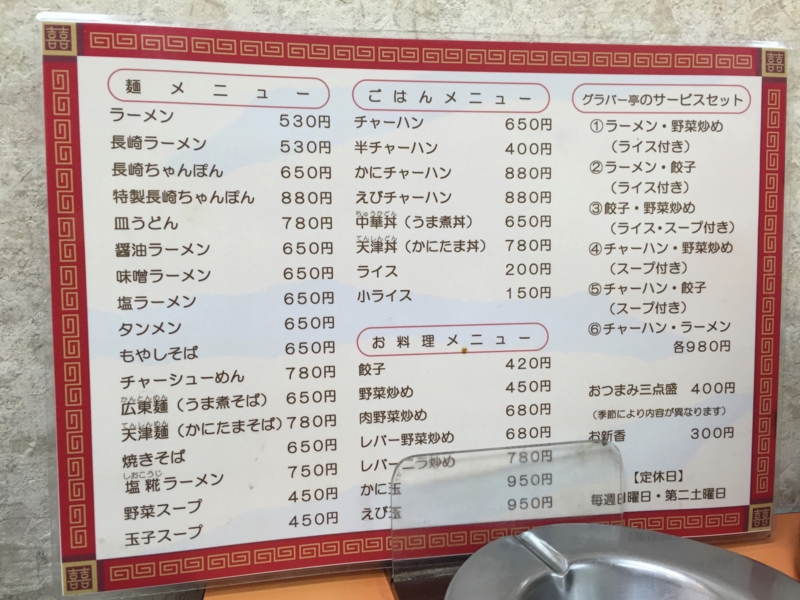 麺メニュー
ラーメン 530円
長崎ラーメン 530円
長崎ちゃんぽん 650円
特製長崎ちゃんぽん 880円
皿うどん 780円
醤油ラーメン 650円
味噌ラーメン 650円
塩ラーメン 650円
タンメン 650円
もやしそば 650円
チャーシューめん 780円
かんとんめん
広東麺（うま煮そば） 650円
てんしんめん
天津麺（かにたまそば） 780円
焼きそば 650円
しおこうじ
塩糀ラーメン 750円
野菜スープ 450円
玉子スープ 450円
ごはんメニュー
チャーハン 650円
半チャーハン 400円
かにチャーハン 880円
えびチャーハン 880円
ちゅうかどん
中華丼（うま煮丼） 650円
てんしんどん
天津丼（かにたま丼） 780円
ライス 200円
小ライス 150円
お料理メニュー
餃子 420円
野菜炒め 450円
肉野菜炒め 680円
レバー野菜炒め 680円
レバーニラ炒め 780円
かに玉 950円
えび玉 950円
グラバー亭のサービスセット
①ラーメン・野菜炒め
（ライス付き）
②ラーメン・餃子
（ライス付き）
③餃子・野菜炒め
（ライス・スープ付き）
④チャーハン・野菜炒め
（スープ付き）
⑤チャーハン・餃子
（スープ付き）
⑥チャーハン・ラーメン
各980円
おつまみ三点盛 400円
（季節により内容が異なります）
お新香 300円
【定休日】
毎週日曜日・第二土曜日